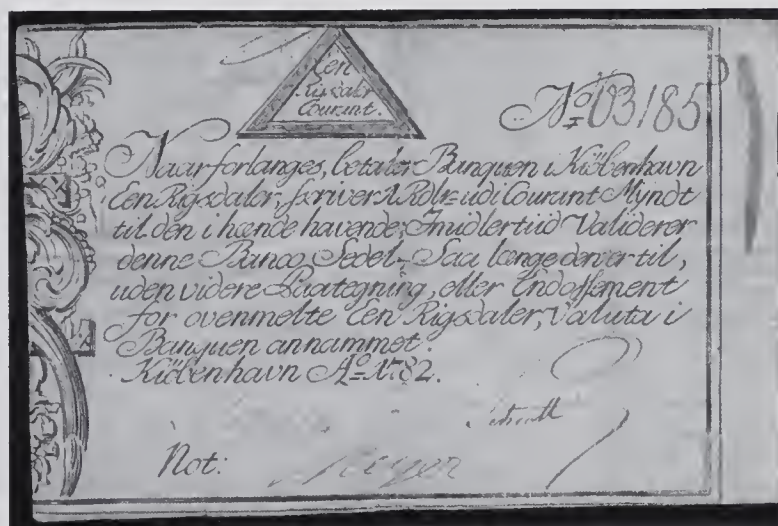 Een
Rigsdaler
Courant.
No 103185
Naar forlanges, betaler Banquen i Kiöbenhavn
Een Rigsdaler, skriver 1 Rdlr. udi Courant Myndt
til den i hænde havende; Imidlertiid Validerer
denne Banco-Sedel, Saa længe den er til,
uden videre Paategning, eller Endossement
for ovenmelte Een Rigsdaler, Valuta i
Banquen annammet.
Kiöbenhavn Ao 1782.
Not: